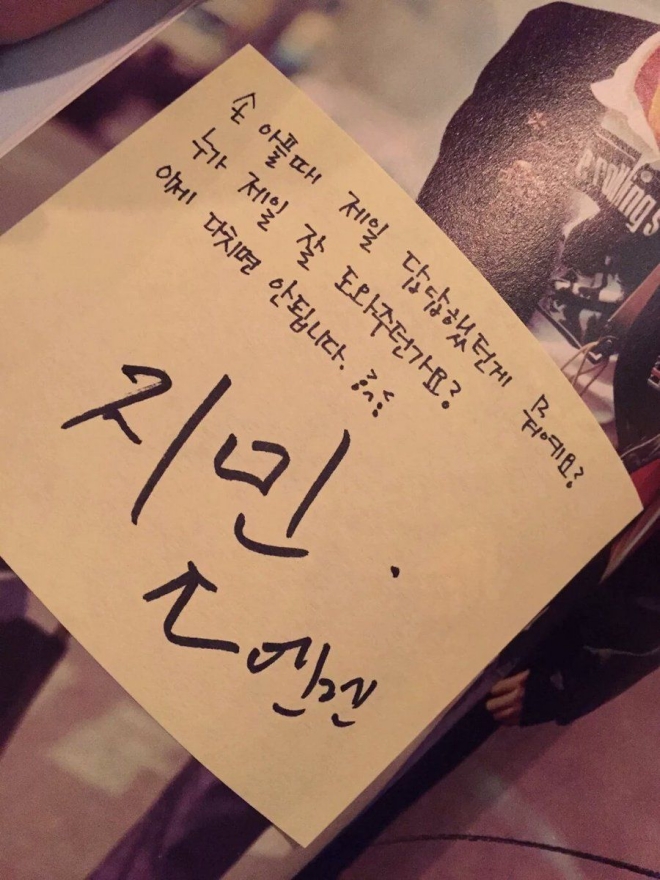 손 아플때 제일 답답했던게 뭐예요?
누가 제일 잘 도와주던가요?
이제 다치면 안됩니다.
지민.
rolling